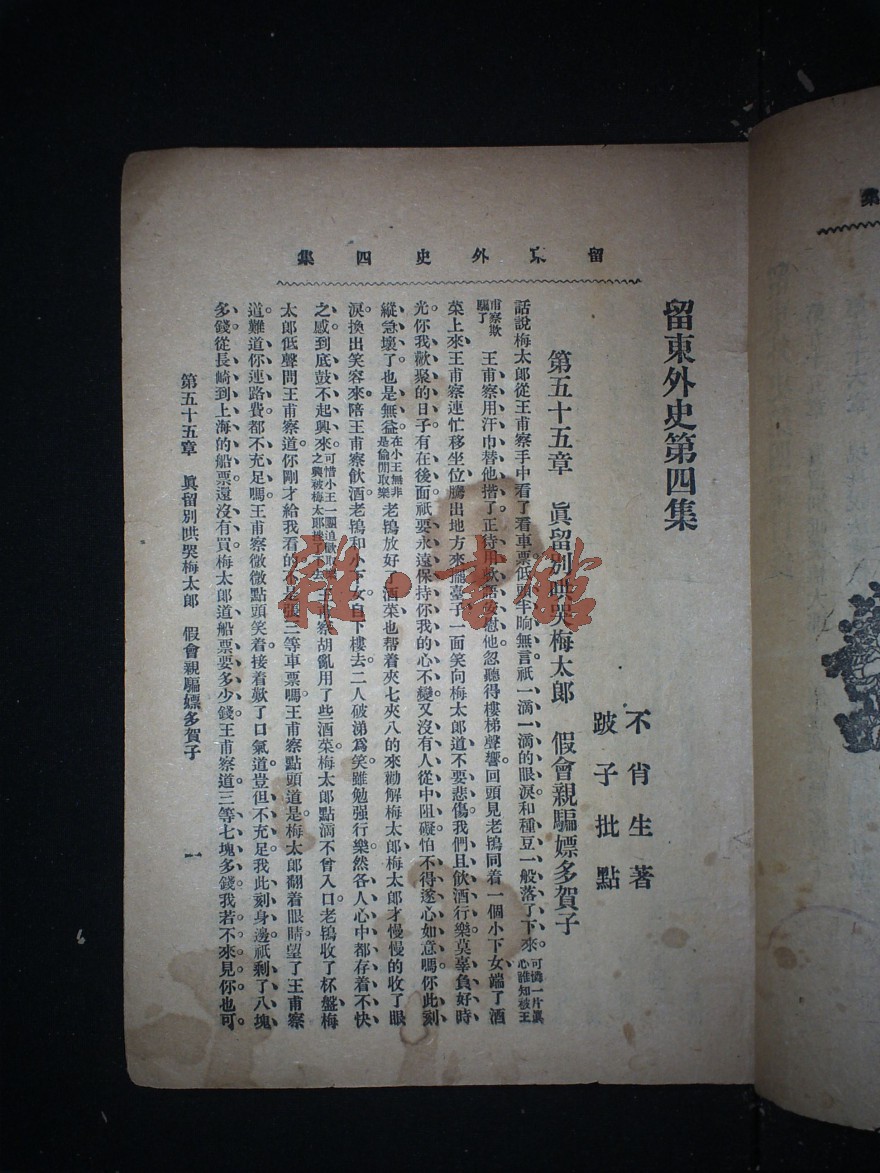 留東外史四集
留東外史第四集
不肖生著
跛子批點
第五十五章 眞留別哄哭梅太郎 假會親騙嫖多賀子
話說梅太郎從王甫察手中看了看車票低頭半晌無言祇一滴一滴的眼淚和種豆一般落了下來。可憐一片眞心誰知被王
甫察欺騙了 王甫察用汗巾替他揩了正待用軟語安慰他忽聽得樓梯聲響回頭見老鴇同着一個小下女端了酒
菜上來王甫察連忙移坐位騰出地方來擺臺子一面笑向梅太郎道不要悲傷我們且飲酒行樂莫辜負好時
光你我歡聚的日子有在後面祇要永遠保持你我的心不變又沒有人從中阻礙怕不得遂心如意嗎你此刻
縱急壞了也是無益在小王無非是偷閒取樂 老鴇放好 酒菜也帮着夾七夾八的來勸解梅太郎梅太郎才慢慢的收了眼
淚換出笑容來陪王甫察飲酒老鴇和小下女自下樓去二人破涕爲笑雖勉强行樂然各人心中都存着不快
之感到底鼓不起興來。可惜小王一團之興被梅太郎 王甫察胡亂用了些酒菜梅太郎點滴不曾入口。老鴇收了杯盤梅
太郎低聲問王甫察道你剛才給我看的不是張三等車票嗎王甫察點頭道是梅太郎翻着眼睛望了王甫察
道難道你連路費都不充足嗎王甫察微微點頭笑着接着歎了口氣道豈但不充足我此刻身邊祇剩了八塊
多錢從長崎到上海的船票還沒有買梅太郎道船票要多少錢王甫察道三等七塊多錢我若不來見你也可
第五十五章 眞留別哄哭梅太郎 假會親騙嫖多賀子
一
雜·書館
集